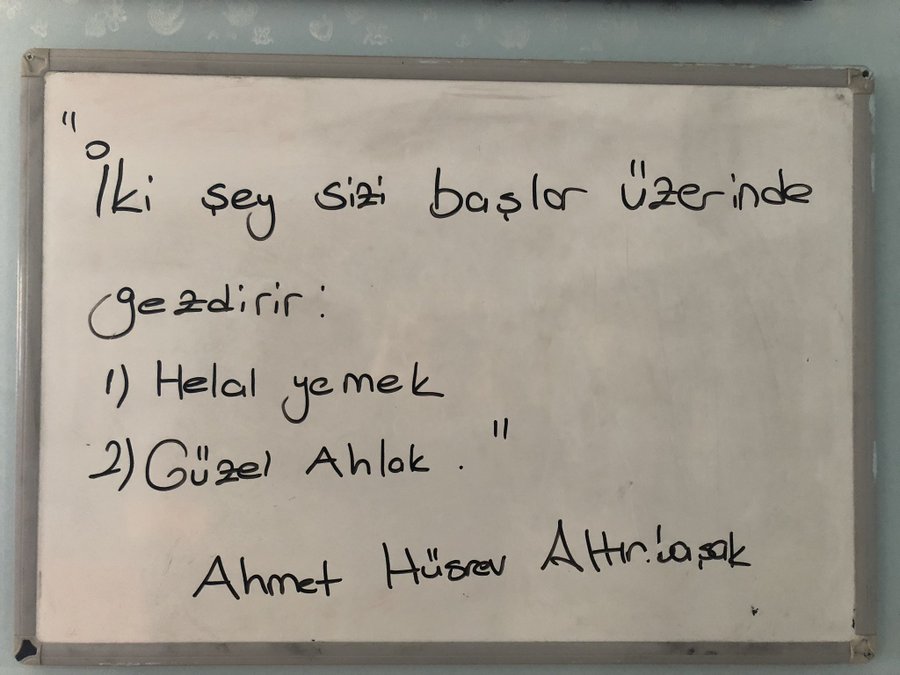 "İki şey sizi başlar üzerinde
gezdirir:
1) Helal yemek
2) Güzel Ahlak."
Ahmet Hüsrev